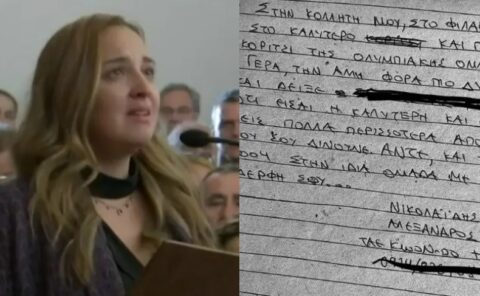 ΣΤΗΝ ΚΟΛΛΗΤΗ ΜΟΥ, ΣΤΟ ΦΙΛΑ
ΣΤΟ ΚΑΛΥΤΕΡΟ ΚΑΙ Π
ΚΟΡΙΤΣΙ ΤΗΣ ΟΛΥΜΠΙΑΚΗΣ ΟΜΑ
ΓΕΡΑ, ΤΗΝ ΑΛΛΗ ΦΟΡΑ ΠΙΟ ΔΥ
ΚΑΙ ΔΕΙΞΕ
ΟΤΙ ΕΙΣΑΙ Η ΚΑΛΥΤΕΡΗ ΚΑΙ
ΕΙΣ ΠΟΛΛΑ ΠΕΡΙΣΣΟΤΕΡΑ ΑΠΟ
ΠΟΥ ΣΟΥ ΔΙΝΟΥΝΕ. ΑΝΤΕ, ΚΑΙ
ΣΤΗΝ ΙΔΙΑ ΟΜΑΔΑ ΜΕ
ΔΕΡΦΗ ΣΟΥ...
ΝΙΚΟΛΑΪΔΗΣ
ΑΛΕΞΑΝΔΡΟΣ
ΤΑΕ ΚΩΟΝ ΝΤΟ